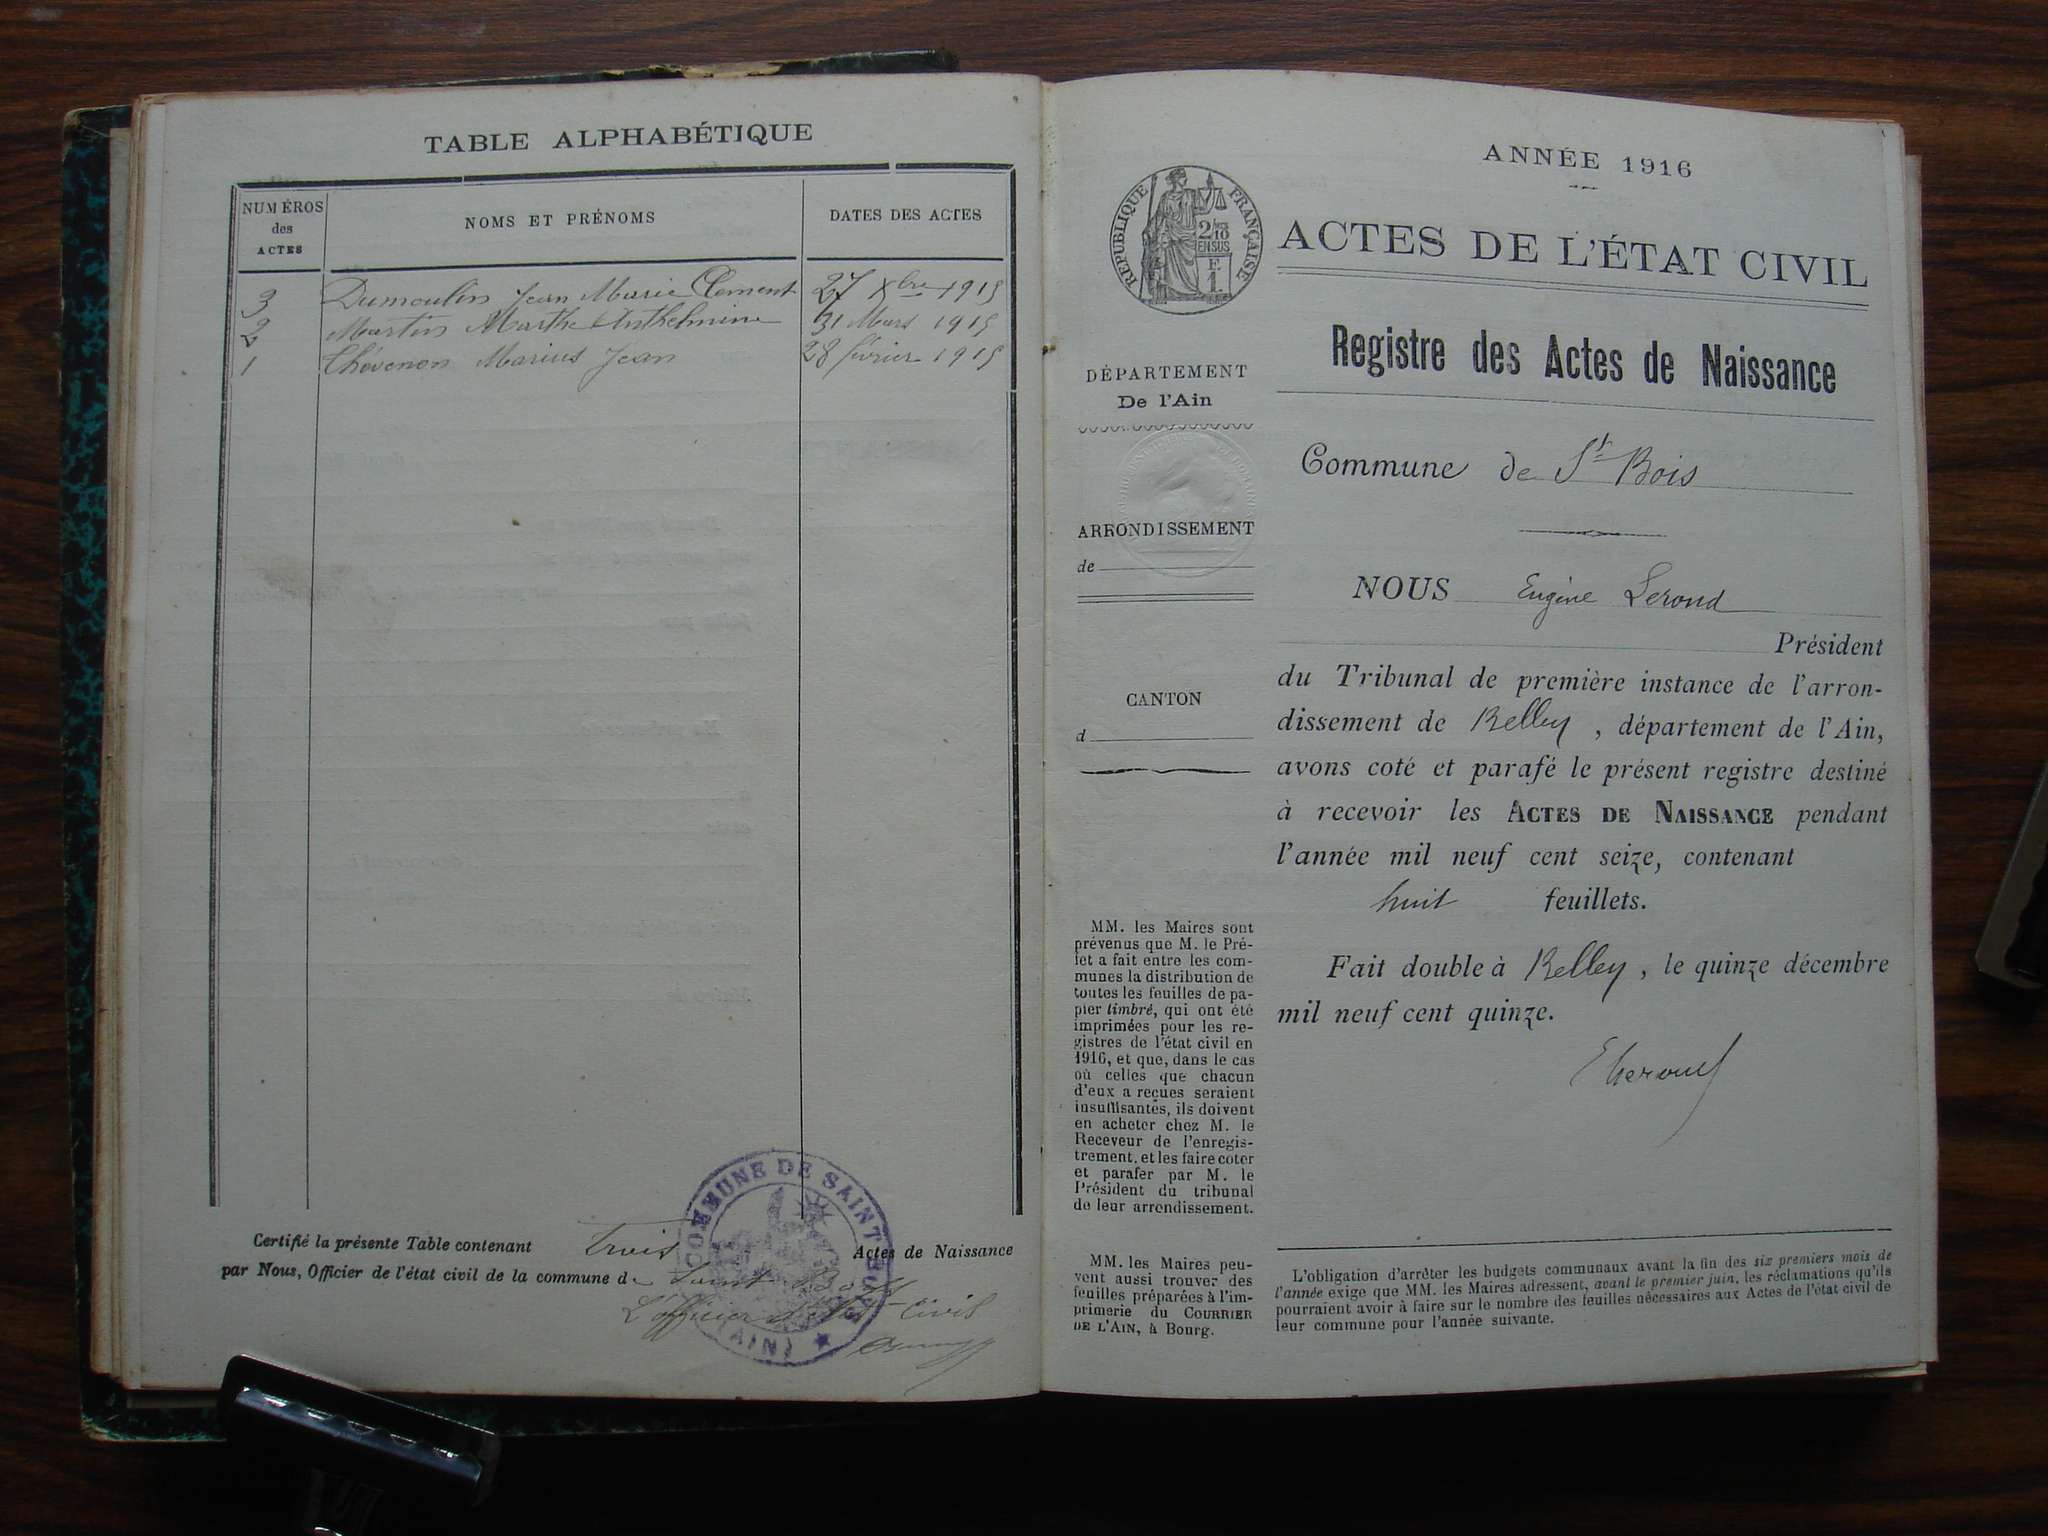 TABLE ALPHABÉTIQUE
NUMÉROS des ACTES
NOMS ET PRÉNOMS
DATES DES ACTES
3 Dumoulin Jean Marie Clement 27 Xbre 1915
2 Martin Marthe Anthelmine 31 Mars 1915
1 Thévenon Marius Jean 28 février 1915
Certifié la présente Table contenant trois Actes de Naissance
par Nous, Officier de l'état civil de la commune de Saint Bois
L'officier de l'état civil
COMMUNE DE SAINT BOIS
(AIN)
ANNÉE 1916
RÉPUBLIQUE FRANÇAISE
2/10
EN SUS
F.
1.
ACTES DE L'ÉTAT CIVIL
Registre des Actes de Naissance
DÉPARTEMENT
De l'Ain
ARRONDISSEMENT
de
CANTON
d
Commune de St Bois
NOUS Eugène Lerond
Président
du Tribunal de première instance de l'arron-
dissement de Belley, département de l'Ain,
avons coté et parafé le présent registre destiné
à recevoir les ACTES DE NAISSANCE pendant
l'année mil neuf cent seize, contenant
huit feuillets.
Fait double à Belley, le quinze décembre
mil neuf cent quinze.
MM. les Maires sont
prévenus que M. le Pré-
fet a fait entre les com-
munes la distribution de
toutes les feuilles de pa-
pier timbré, qui ont été
imprimées pour les re-
gistres de l'état civil en
1916, et que, dans le cas
où celles que chacun
d'eux a reçues seraient
insuffisantes, ils doivent
en acheter chez M. le
Receveur de l'enregis-
trement, et les faire coter
et parafer par M. le
Président du tribunal
de leur arrondissement.
MM. les Maires peu-
vent aussi trouver des
feuilles préparées à l'im-
primerie du COURRIER
DE L'AIN, à Bourg.
L'obligation d'arrêter les budgets communaux avant la fin des six premiers mois de
l'année exige que MM. les Maires adressent, avant le premier juin, les réclamations qu'ils
pourraient avoir à faire sur le nombre des feuilles nécessaires aux Actes de l'état civil de
leur commune pour l'année suivante.